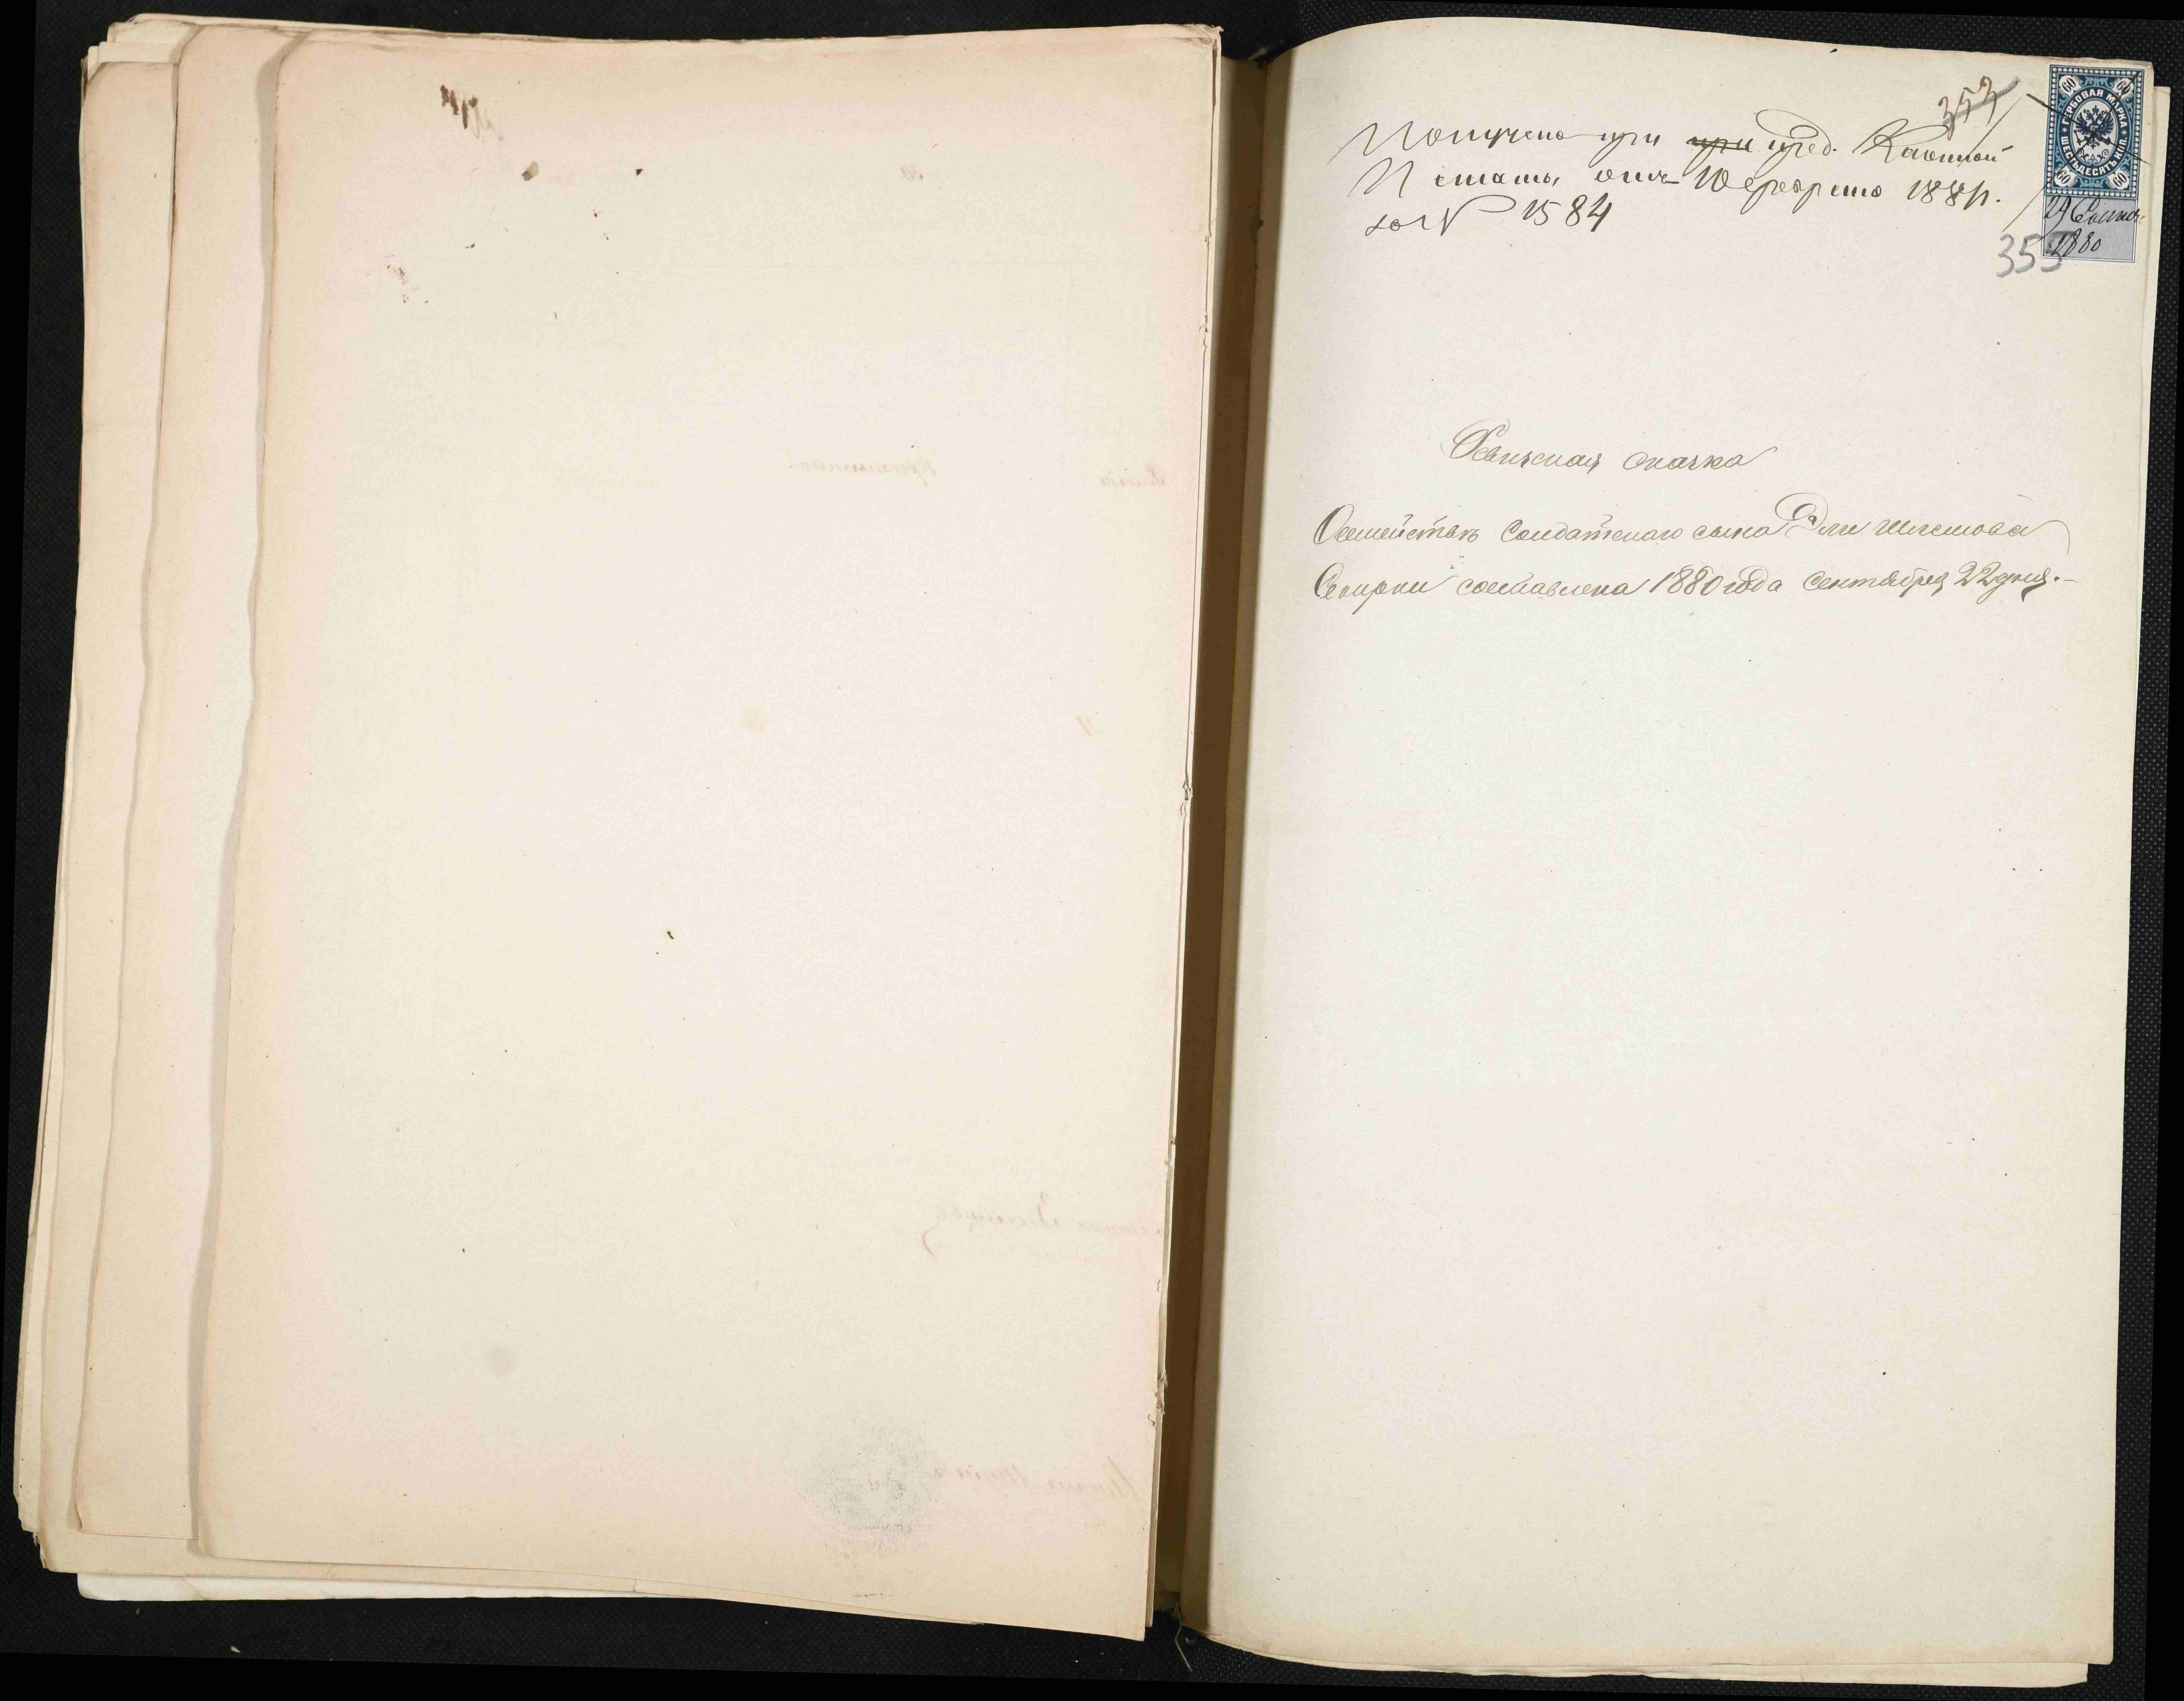 353
Получено при при пред. Казенной
Палаты отъ 10 февраля 1881 г.
за № 1584
ГЕРБОВАЯ МАРКА
ШЕСТЬДЕСЯТЪ КОП.
60 60 60 60
29 Сентяб
1880
353
Ревизская сказка
О семействѣ солдатскаго сына Эли Шлемова
составлена 1880 года Сентября 22 дня.